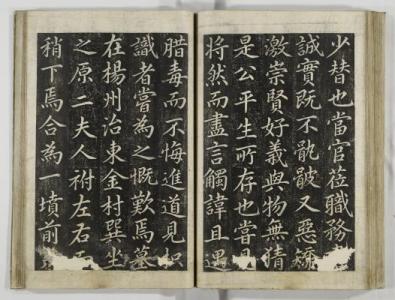 少替也當官莅職務
誠實既不骩骳又惡矯
激崇賢好義與物無猜
是公平生所存也嘗
將然而盡言觸諱且遇
腊毒而不悔進道見
識者嘗為之慨歎焉墓
在楊州治東金村巽坐
之原二夫人祔左右
稍下焉合為一墳前